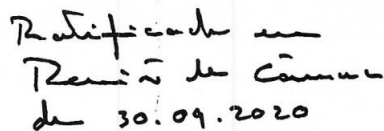 Ratificado em
Reunião de Câmara
de 30.09.2020